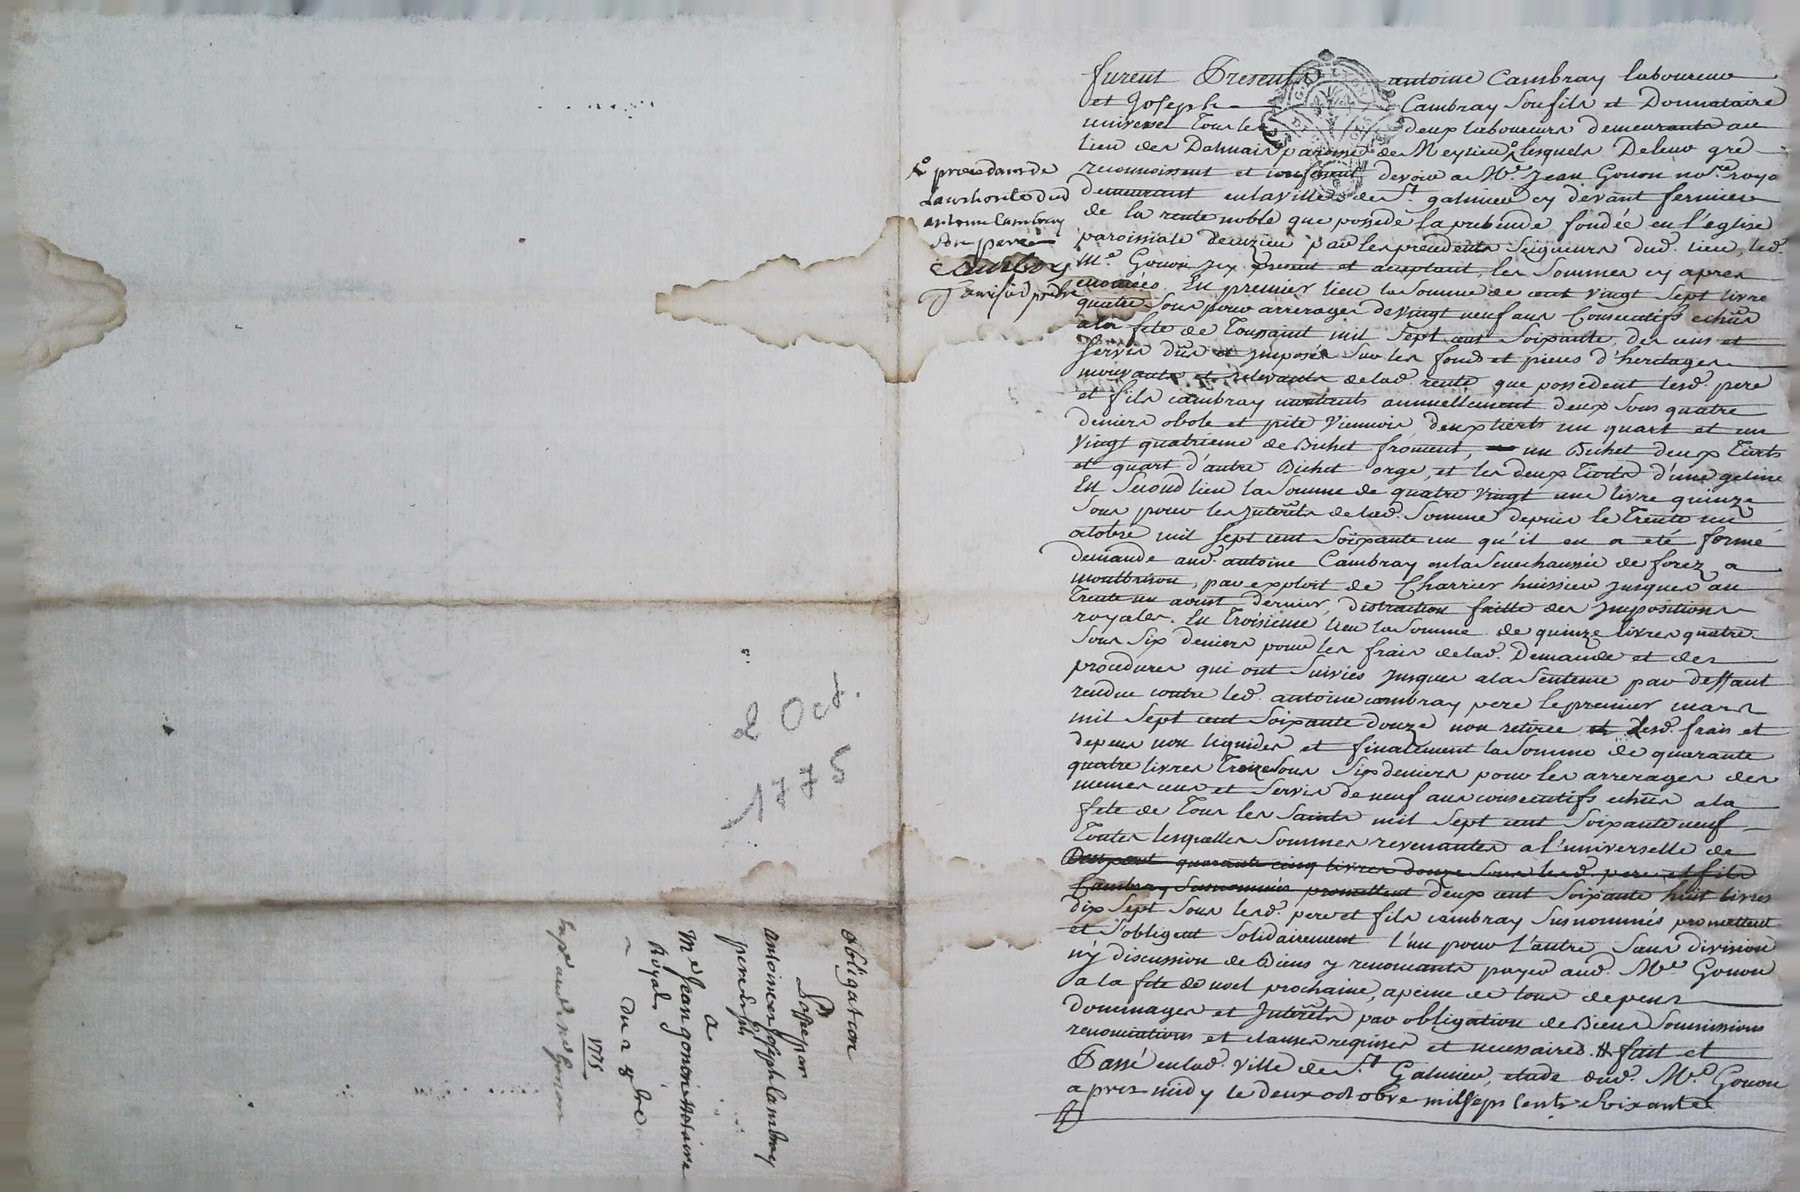 furent Presents antoine Cambray laboureur
et Joseph Cambray son fils et Donnataire
universel Tous les deux laboureurs demeurants au
lieu des Dahnais paroisse de Meylieu lesquels De leur gré
reconnoissent et confessent devoir a Me. Jean Gonon nore. roya
demeurant en la ville de St. galmier cy devant fermier
de la rente noble que possede la prebende fondée en l'eglise
paroissiale deuzieu par les precedents Seigneurs dud. lieu, led.
Me. Gonon icy present et acceptant, les Sommes cy apres
enoncées. En premier lieu la Somme de cent vingt Sept livre
quatre Sous pour arrerages de vingt neuf ans Consecutifs echus
a la fete de Toussaint mil Sept cent Soixante, des cens et
Servis dus et imposés Sur les fonds et pieces d'heritages
mouvants et relevants de lad. rente que possedent lesd. pere
et fils cambray montants annuellement deux Sous quatre
deniers obole et pite Viennois deux tierts un quart et un
vingt quatrieme de Bichet froment, un Bichet deux Tierts
et quart d'autre Bichet orge, et les deux Tierts d'une geline
En Second lieu la Somme de quatre vingt une livre quinze
Sous pour les Interets de lad. Somme depuis le Trente un
octobre mil Sept cent Soixante un qu'il en a eté formé
demande aud. antoine Cambray en la Senechaussée de forez a
montbrison, par exploit de Charrier huissier jusques au
Trente un aoust dernier, distraction faitte des Impositions
royales. En Troisieme lieu la Somme de quinze livres quatre
Sous Six deniers pour les frais de lad. Demande et des
procedures qui ont Suivies jusques a la Sentence par deffaut
rendue contre led. antoine cambray pere le premier mars
mil Sept cent Soixante douze non retirée et lesd. frais et
depens non liquidés et finalement la Somme de quarante
quatre livres Treize Sous Six deniers pour les arrerages des
memes cens et Servis de neuf ans consecutifs echus a la
fete de Tous les Saints mil Sept cent Soixante neuf
Toutes lesquelles Sommes revenantes a l'universelle de
quarante cinq livres douze Sous lesd. pere et fils
Cambray Susnommés promettent deux cent Soixante huit livres
dix Sept Sous lesd. pere et fils cambray Susnommés promettent
et S'obligent Solidairement l'un pour l'autre Sans division
ny discussion de Biens y renoncants payer aud. Me. Gonon
a la fete de noel prochaine, a peine de tous depens
dommages et Interets par obligation de Biens Soumissions
renonciations et clauses requises et necessaires. fait et
Passé en lad. Ville de St. Galmier, etude dud. Me. Gonon
apres midy le deux octobre mil Sept Cents Soixante
procedans de
L'authorité dud
antoine Cambray
Son pere
Cambray
2 Oct.
1775
obligation
Passée par
antoine et Joseph Cambray
pere et fils
a
Me Jean gonon Notaire
Royal
du 2 8bre
1775